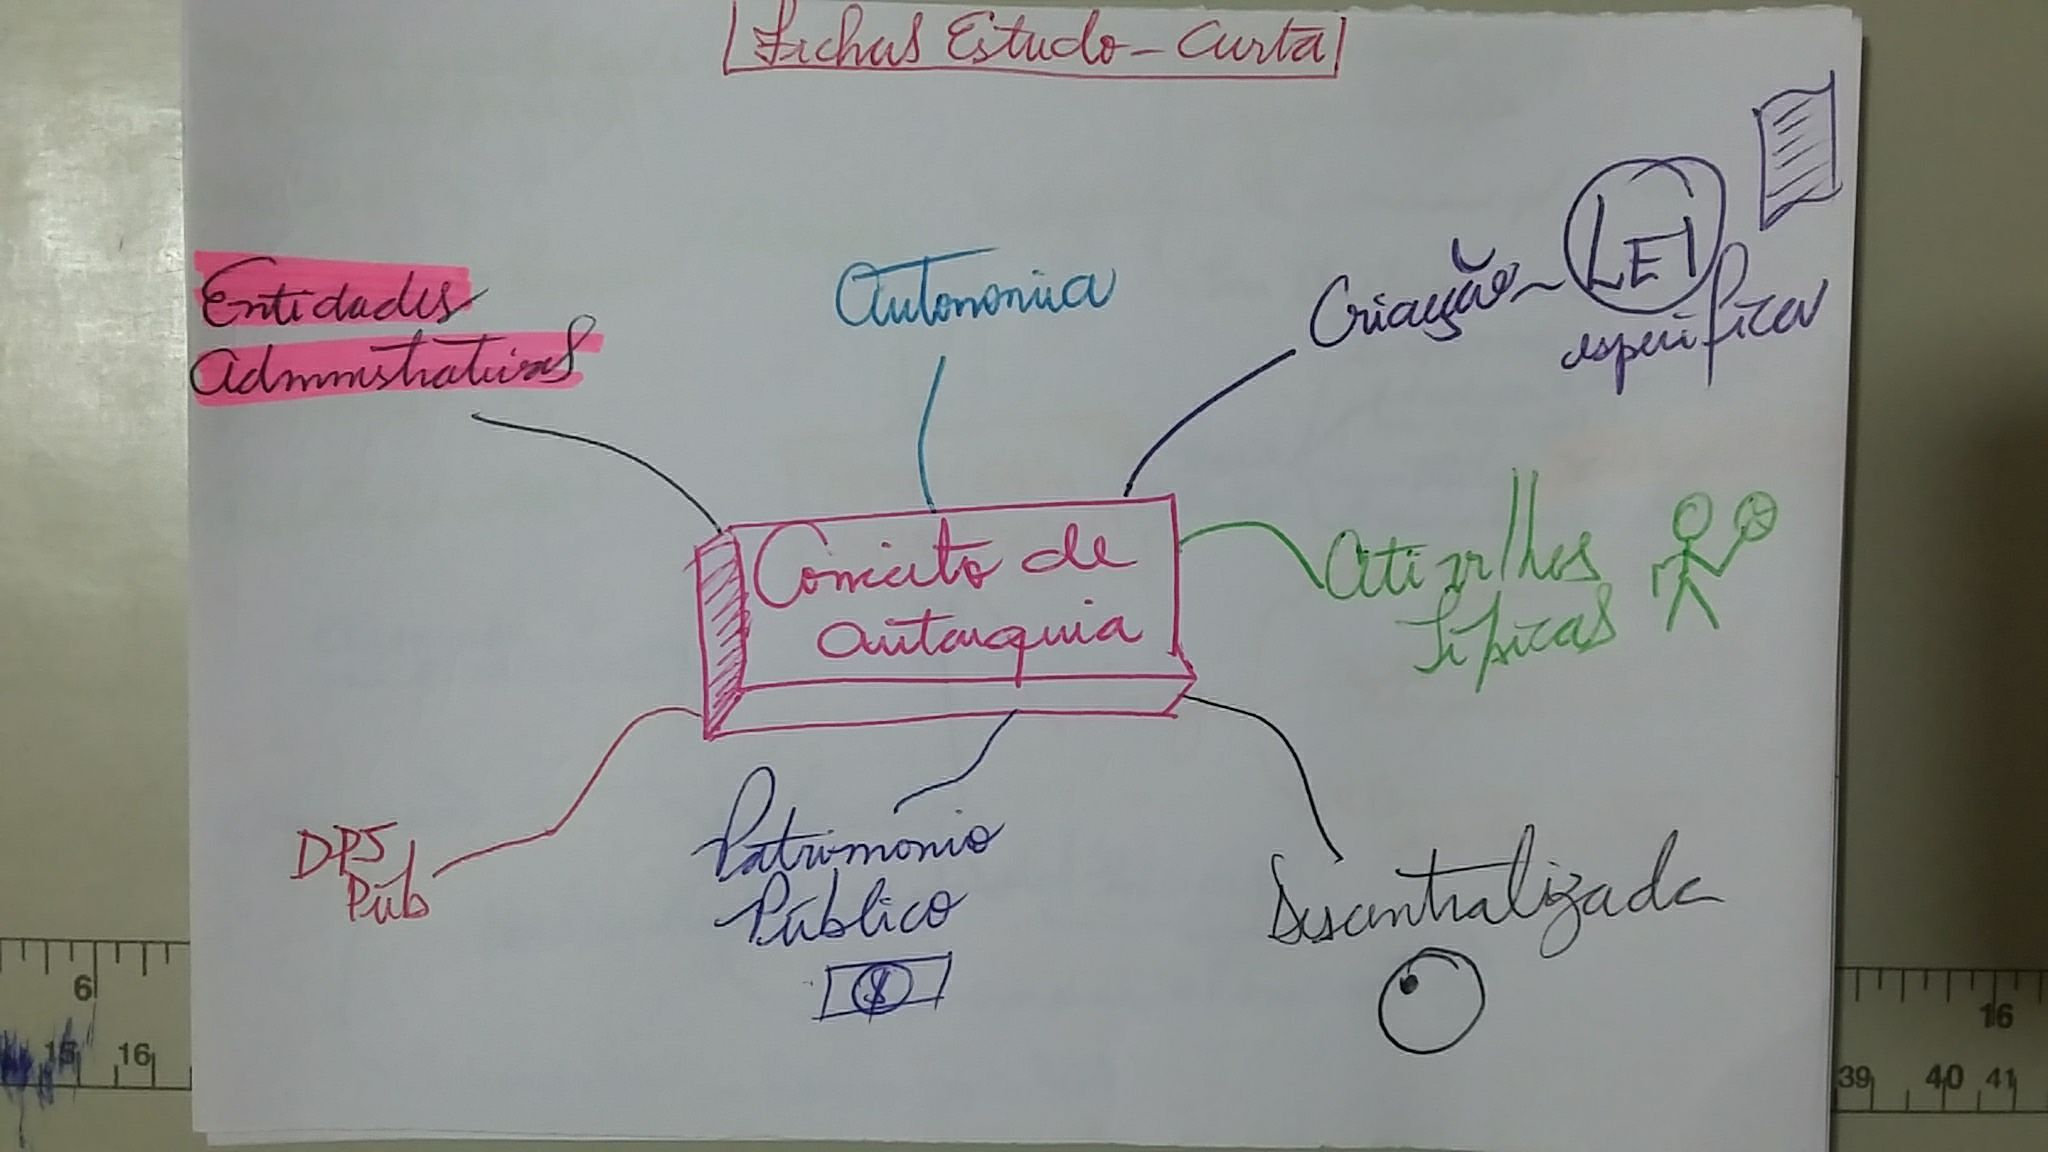 Fichas Estudo - Curta
Entidades
Administrativas
Autonomia
Criação - LEI
específica
Conceito de
autarquia
Típicas
DPJ
Púb
Patrimonio
Público
$
Descentralizada
6
15
16
16
39
40
41